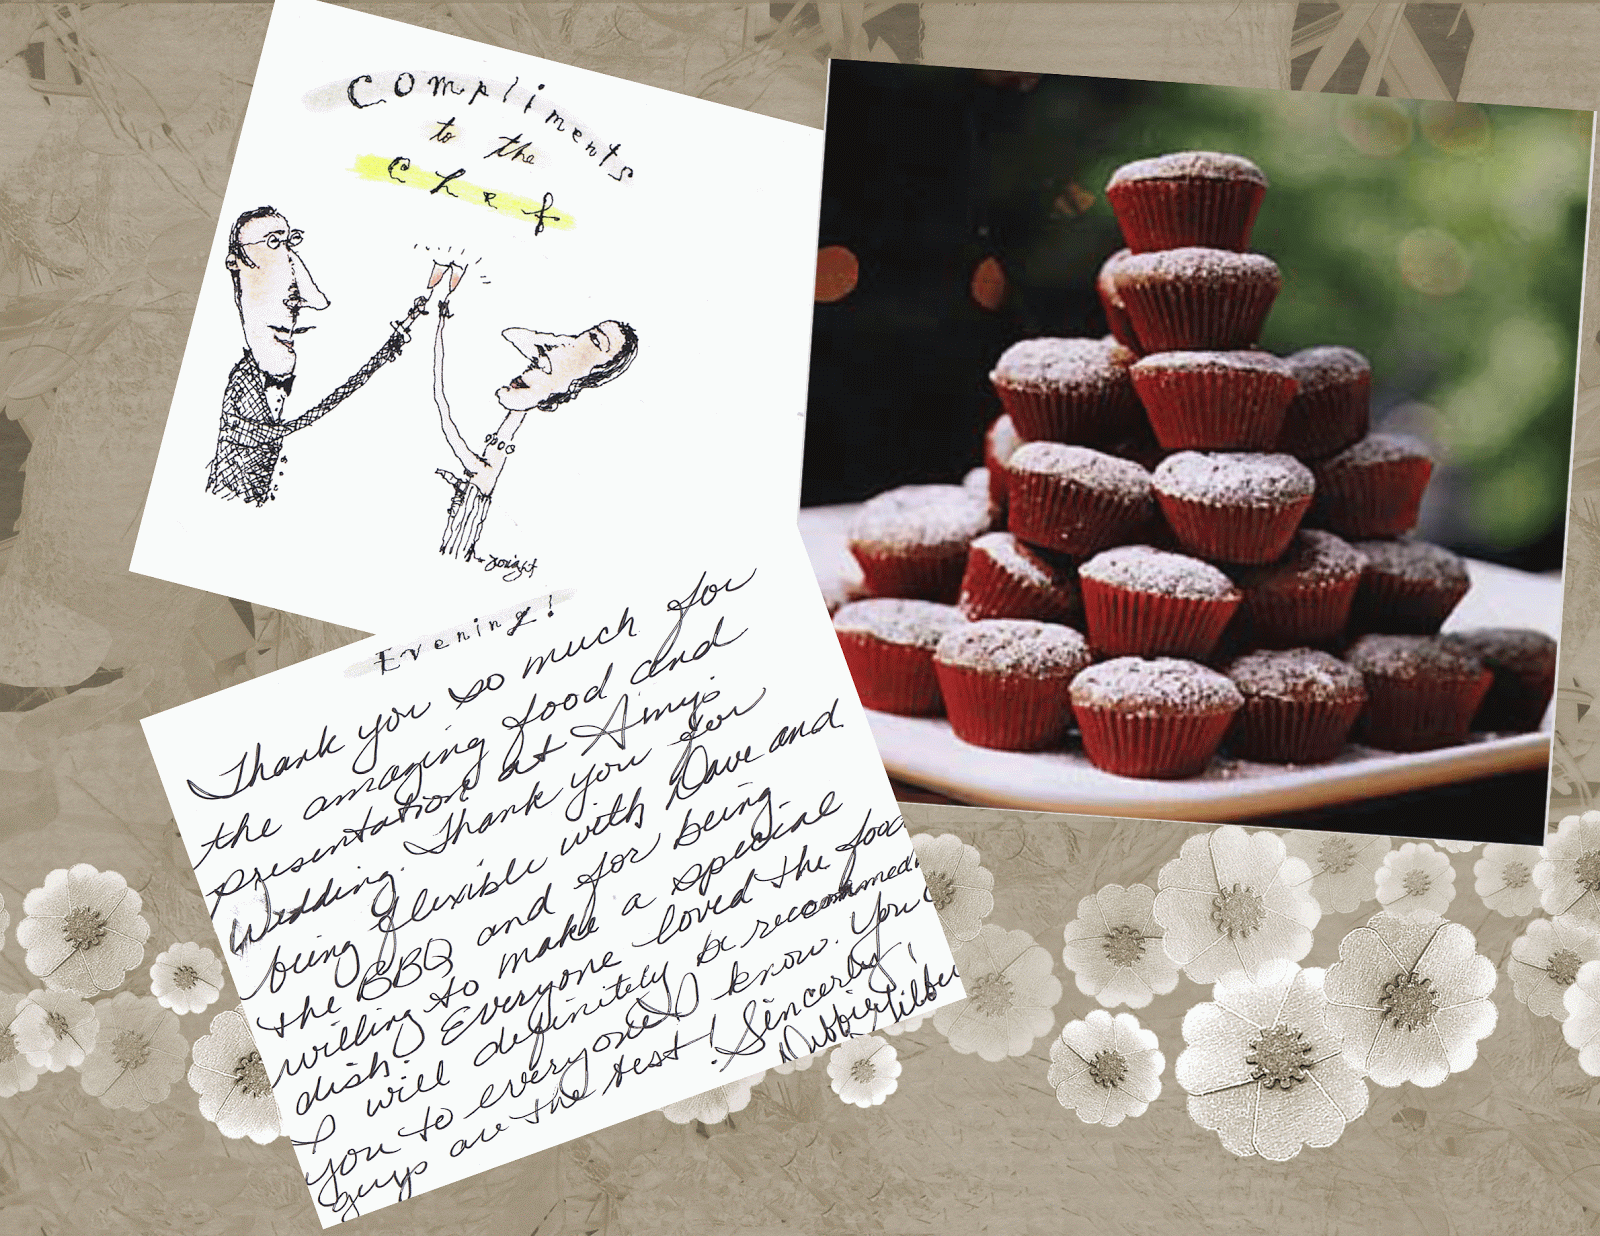 Compliments
to the
Chef
Evening!
Thank you so much for
the amazing food and
presentation at Amy's
Wedding. Thank you for
being flexible with Dave and
the BBQ and for being
willing to make a special
dish. Everyone loved the food
I will definitely be recommedi
you to everyone I know. You
guys are the best! Sincerely,
Debbie Gilbe